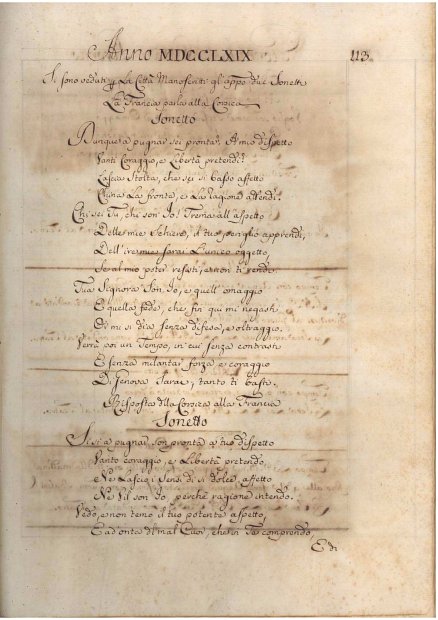 Anno MDCCLXIX 113
Si sono veduti p La Città Manoscritti gl'appo due Sonetti
La Francia parla alla Corsica
Sonetto
Dunque a pugnar sei pronta? A mio dispetto
Vanti Coraggio, e Libertà pretendi?
Lascia Stolta, che sei si basso affetto
China La fronte, e La ragione attendi.
Chi sei Tu, chi son Io? Trema all'aspetto
Delle mie Schiere, il tuo periglio apprendi,
Dell'ire mie sarai L'unico oggetto,
Se al mio poter resisti, e non ti rendi.
Tua Signora Son Io, e quell'omaggio
E quella fede, che fin qui mi negasti
Di mi si dia senza difesa, e oltraggio.
Verrà poi un Tempo, in cui senza contrasti
E senza milantar forza e coraggio
Di Genova Sarai, tanto ti basti.
Risposta dlla Corsica alla Francia
Sonetto
Si si a pugnar son pronta a tuo dispetto
Vanto coraggio, e Libertà pretendo,
Ne Lascio i Sensi di si dolce affetto
Ne Vil son Io, perche ragione intendo.
Vedo, e non temo il tuo potente aspetto,
E ad onta dl mal Cuor, che in Te comprendo,
E di